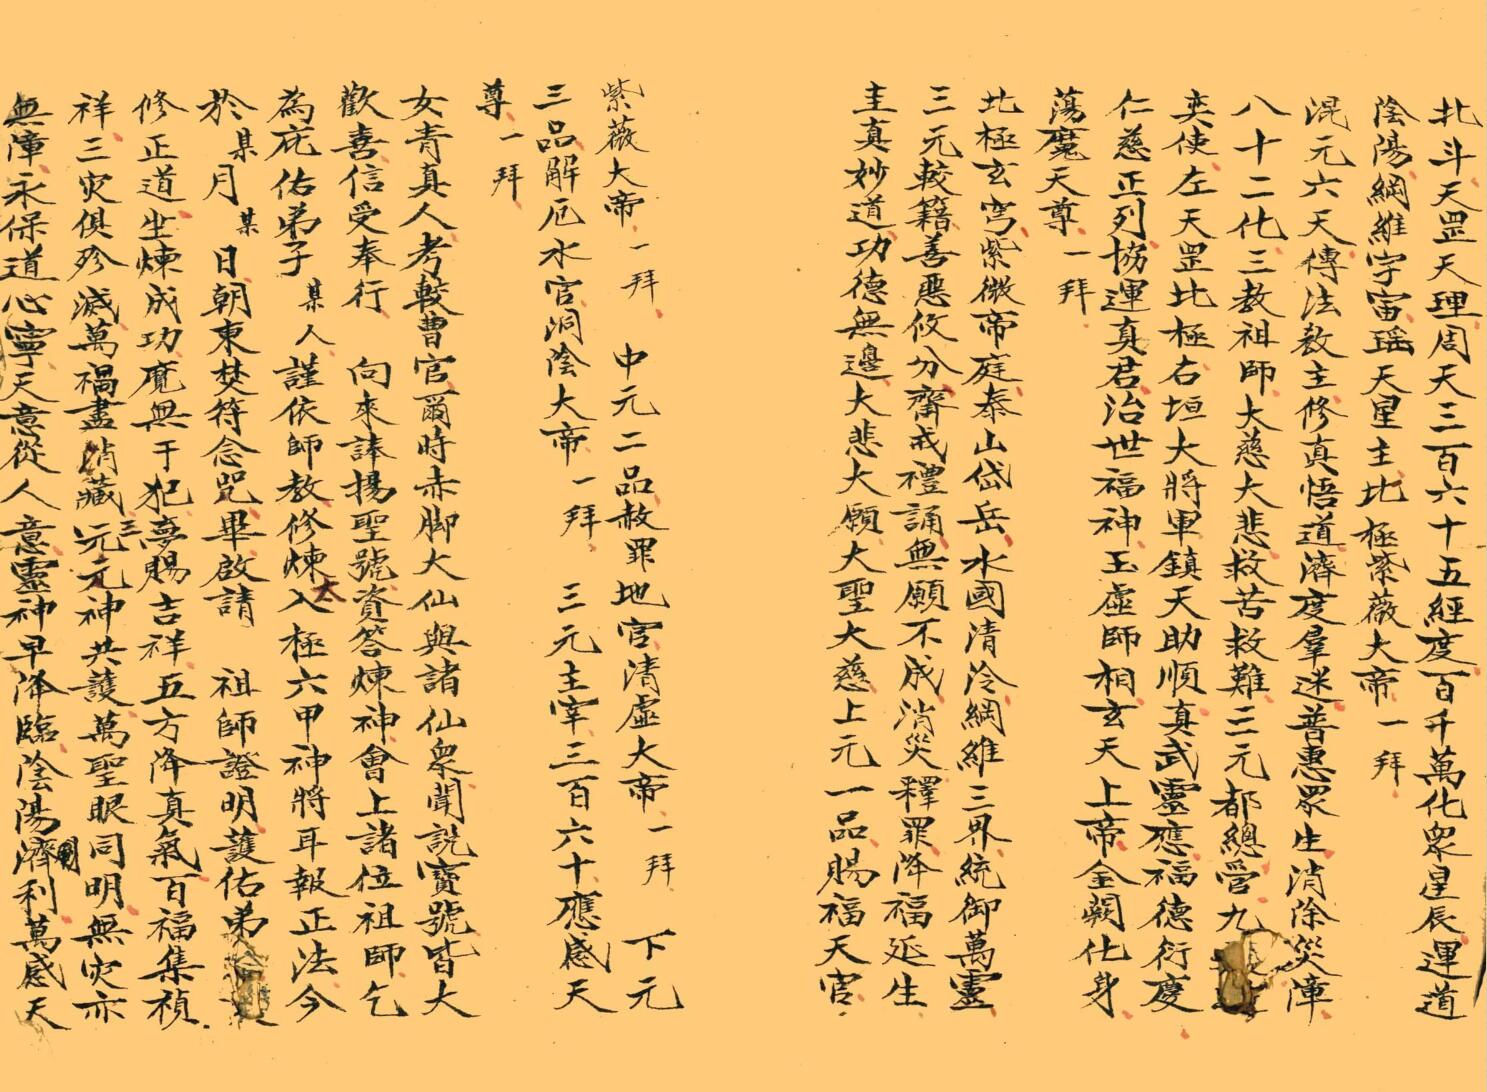 北斗天罡天理周天三百六十五經度百千萬化衆星辰運道
陰陽綱維宇宙瑶天星主北極紫薇大帝一拜
混元六天傳法教主修真悟道濟度羣迷普惠眾生消除災障
八十二化三教祖師大慈大悲救苦救難三元都總管九
奕使左天罡北極右垣大將軍鎮天助順真武靈應福德衍慶
仁慈正列協運真君治世福神玉虛師相玄天上帝金闕化身
蕩魔天尊一拜
北極玄穹紫微帝庭泰山岱岳水國清泠綱維三界統御萬靈
三元較籍善惡攸分齋戒禮誦無願不成消災釋罪降福延生
主真妙道功德無邊大悲大願大聖大慈上元一品賜福天官
紫薇大帝一拜 中元二品赦罪地官清虛大帝一拜 下元
三品解厄水官洞陰大帝一拜 三元主宰三百六十應感天
尊一拜
女青真人考較曹官爾時赤脚大仙與諸仙衆聞説寶號皆大
歡喜信受奉行 向來諱揚聖號資答煉神會上諸位祖師乞
為庇佑弟子某人謹依師教修煉入太極六甲神將耳報正法今
於某月某日朝東焚符念咒畢啟請 祖師證明護佑弟
修正道坐煉成功魔無干犯夢賜吉祥五方降真氣百福集禎
祥三灾俱殄滅萬禍盡消藏三元元神共護萬聖眼同明無灾亦
無障永保道心寧天意從人意靈神早降臨陰陽濟利萬感天